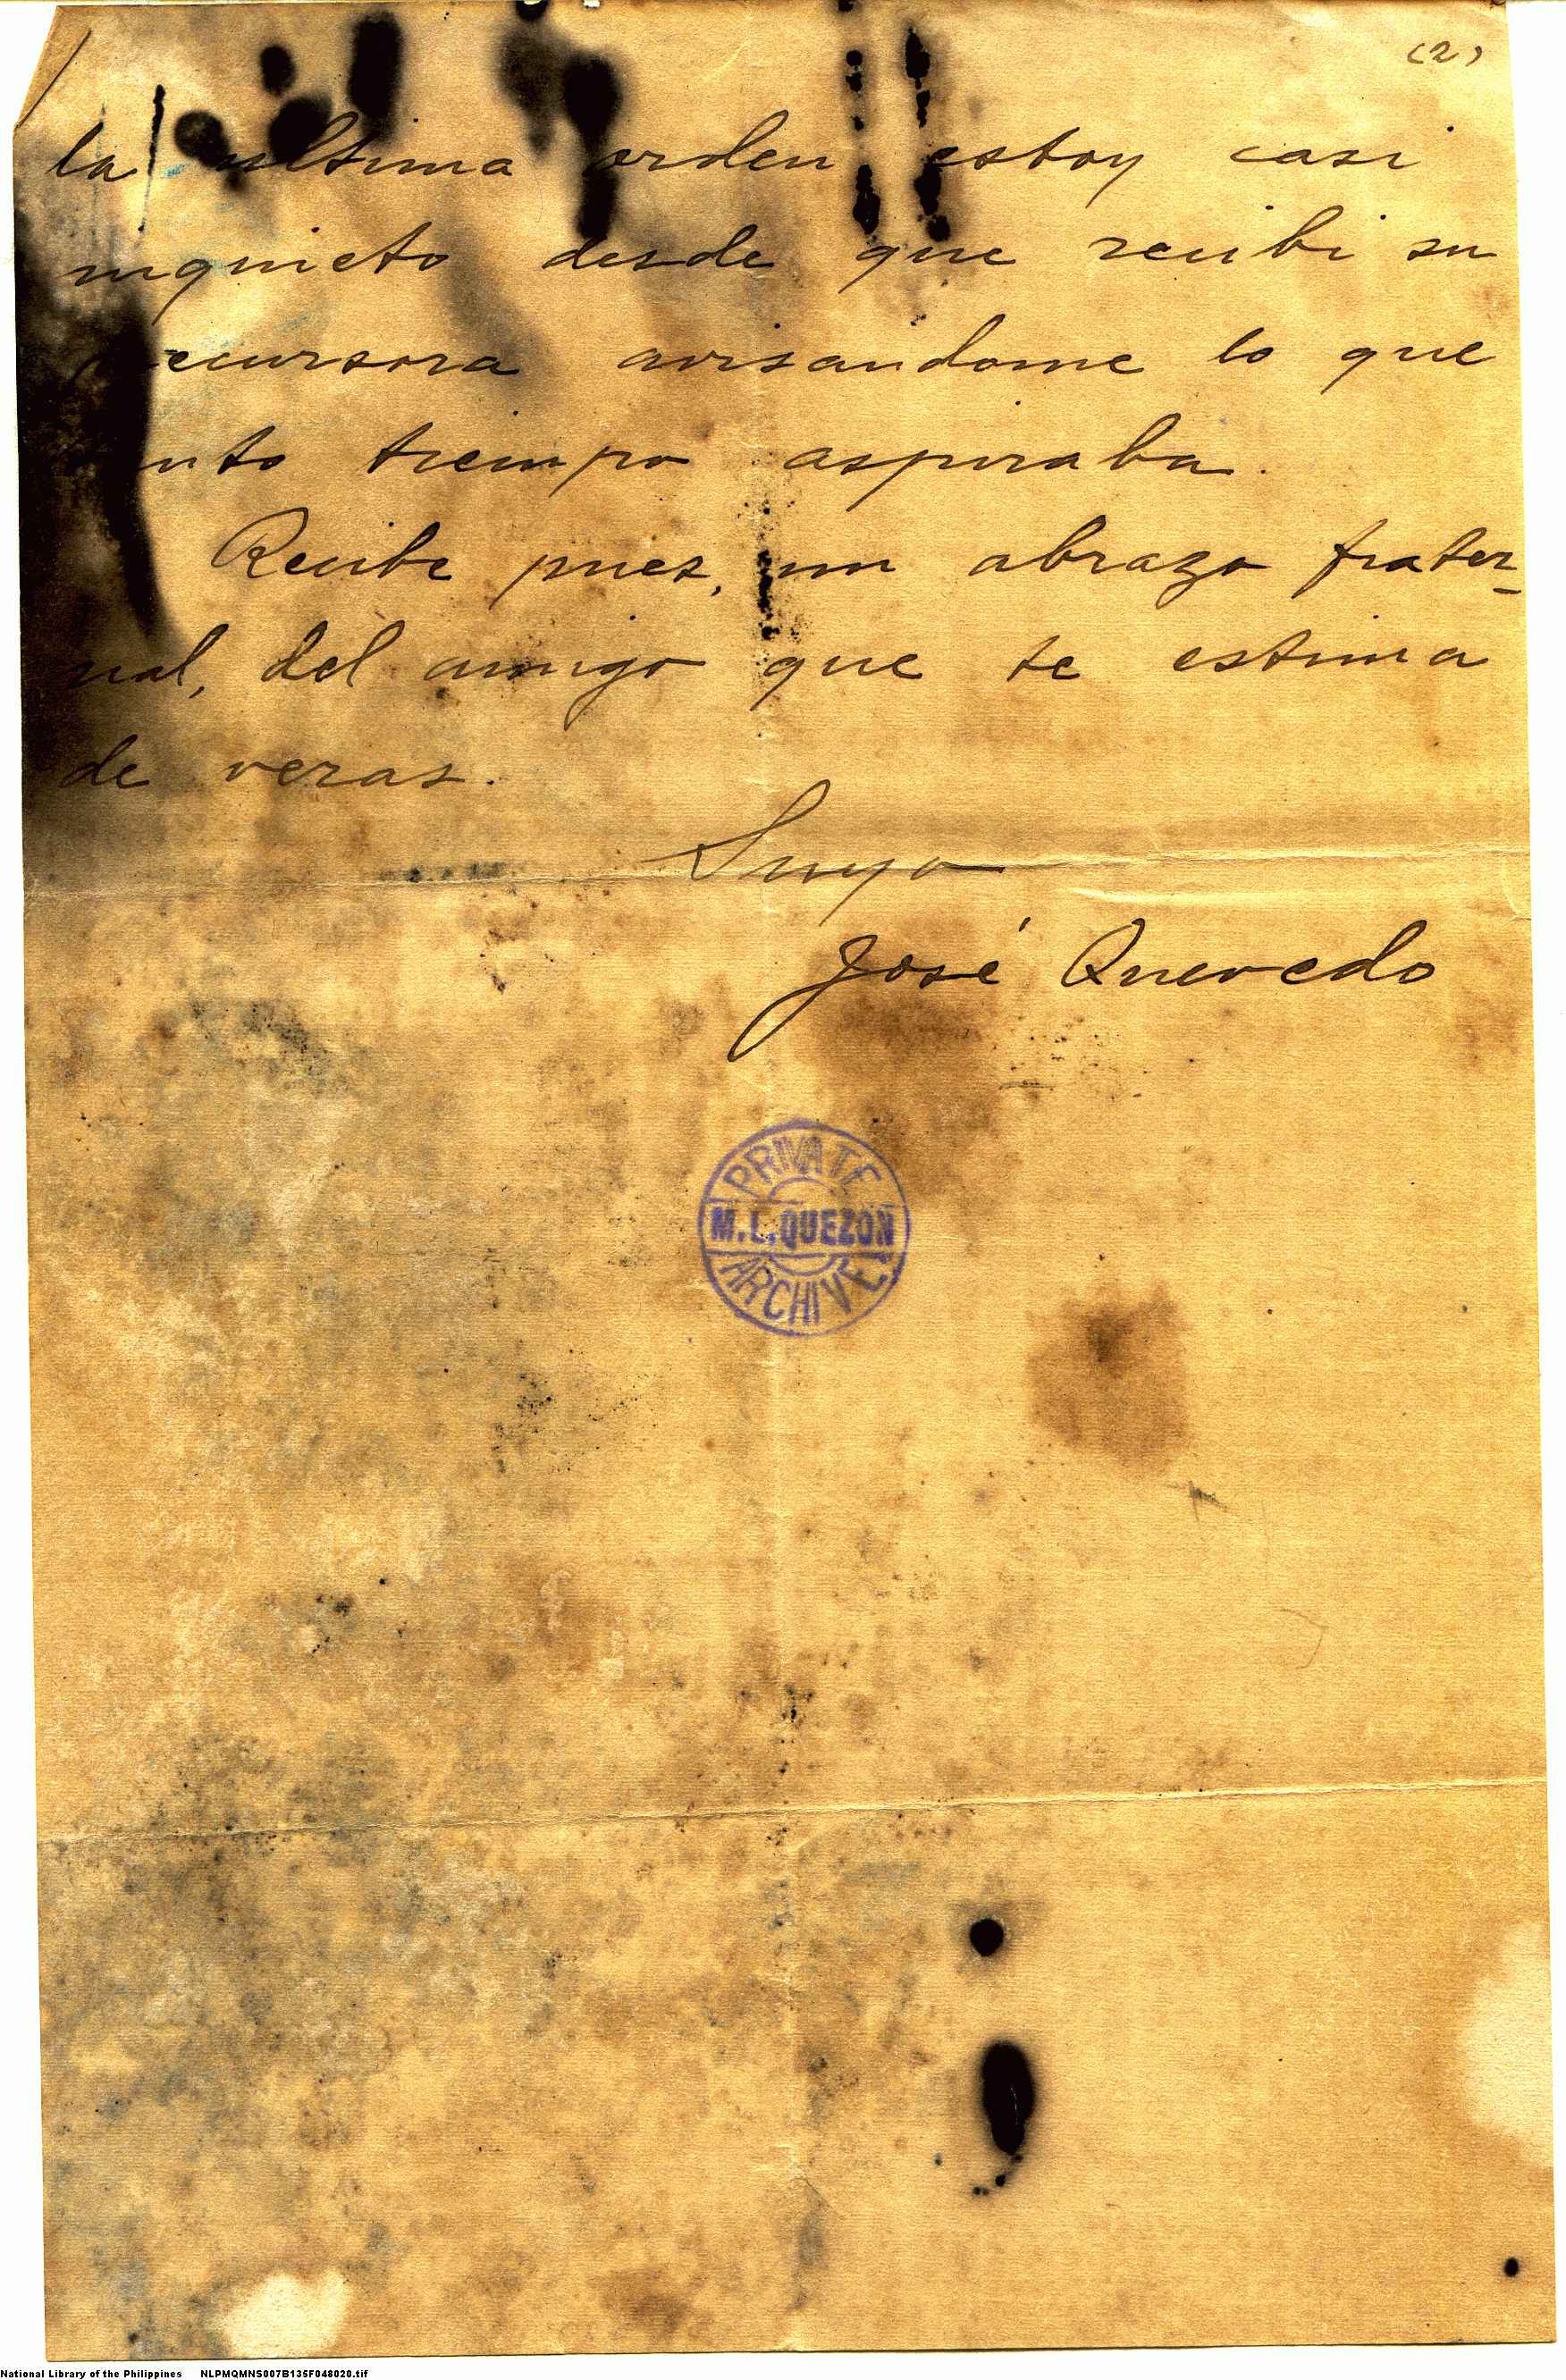 (2)
la ultima orden estoy casi
inquieto desde que recibi su
ecursora avisandome lo que
nto tiempo aspiraba.
Recibe pues, un abrazo frater-
nal, del amigo que te estima
de veras.
Suyo
José Quevedo
PRIVATE
M.L.QUEZON
ARCHIVE
National Library of the Philippines NLPMQMNS007B135F048020.tif